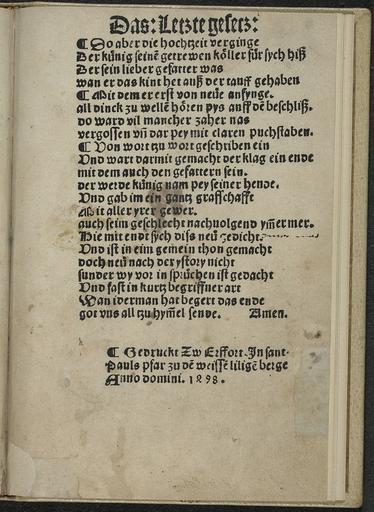 Das: Letzte gesetz:
¶ So aber die hochtzeit verginge
Der künig seinē getrewen köller für sych hiß
Der sein lieber gefatter was
wan er das kint het auß der tauff gehaben
¶ Mit dem er erst von neuē anfynge.
all dinck zu wellē hören pys auff dē beschliß.
do ward vil mancher zaher nas
vergossen vñ dar pey mit claren puchstaben.
¶ Von wort tzu wort geschriben ein
Vnd wart darmit gemacht der klag ein ende
mit dem auch den gefattern sein.
der werde künig nam pey seiner hende.
Vnd gab im ein gantz graffschafft
Mit aller yrer gewer.
auch seim geschlecht nachuolgend ym̄er mer.
Hie mit endt sych diss neü gedicht.
Vnd ist in eim gemein thon gemacht
doch neü nach der ystory nicht
sunder wy vor in sprüchen ist gedacht
Vnd fast in kurtz begriffner art
Wan iderman hat begert das ende
got vns all tzu hym̄el sende. Amen.
¶ Gedruckt Zw Erffort. In sant-
Pauls pfar zu dē weissē liligē berge
Anno domini. 1298.